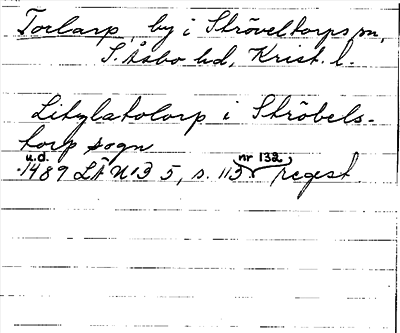 Torlarp, by i Strövelstorps sn,
S. Åsbo hd, Krist. l.
Litylatolarp i Ströbels-
torp sogn
u.d. nr 132
1489 LÄU 13 5, s. 115 regest